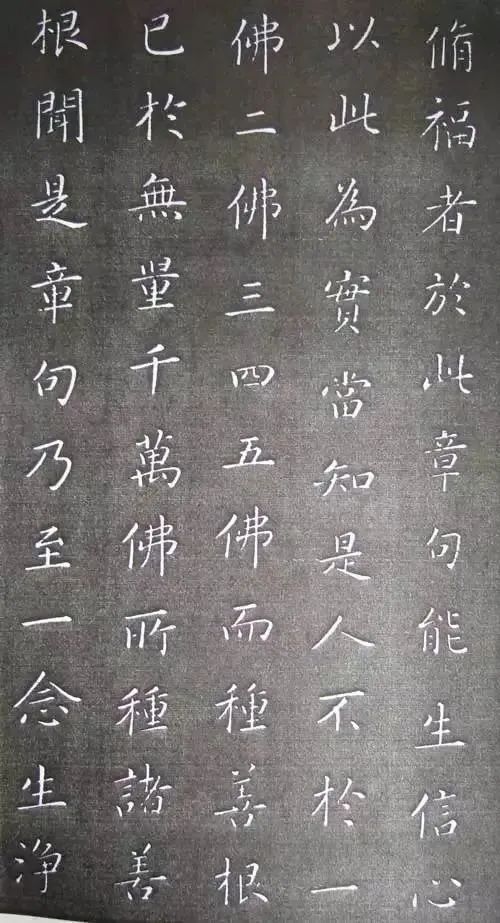 脩福者於此章句能生信心
以此為實當知是人不於一
佛二佛三四五佛而種善根
已於無量千萬佛所種諸善
根聞是章句乃至一念生淨